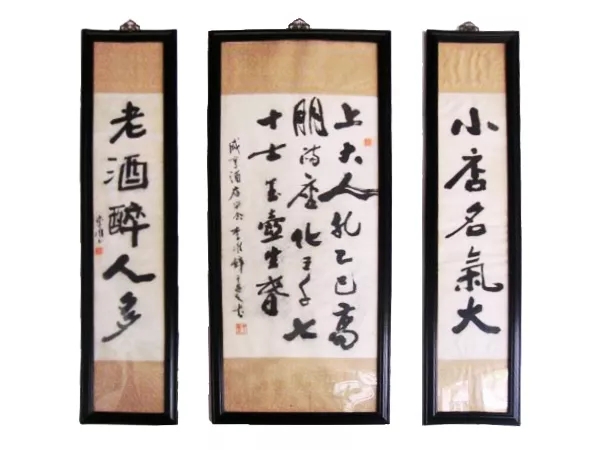 小店名氣大
上大人孔乙己高
朋满座化三千七
十士玉壺生春
咸亨酒店
老酒醉人多
李准